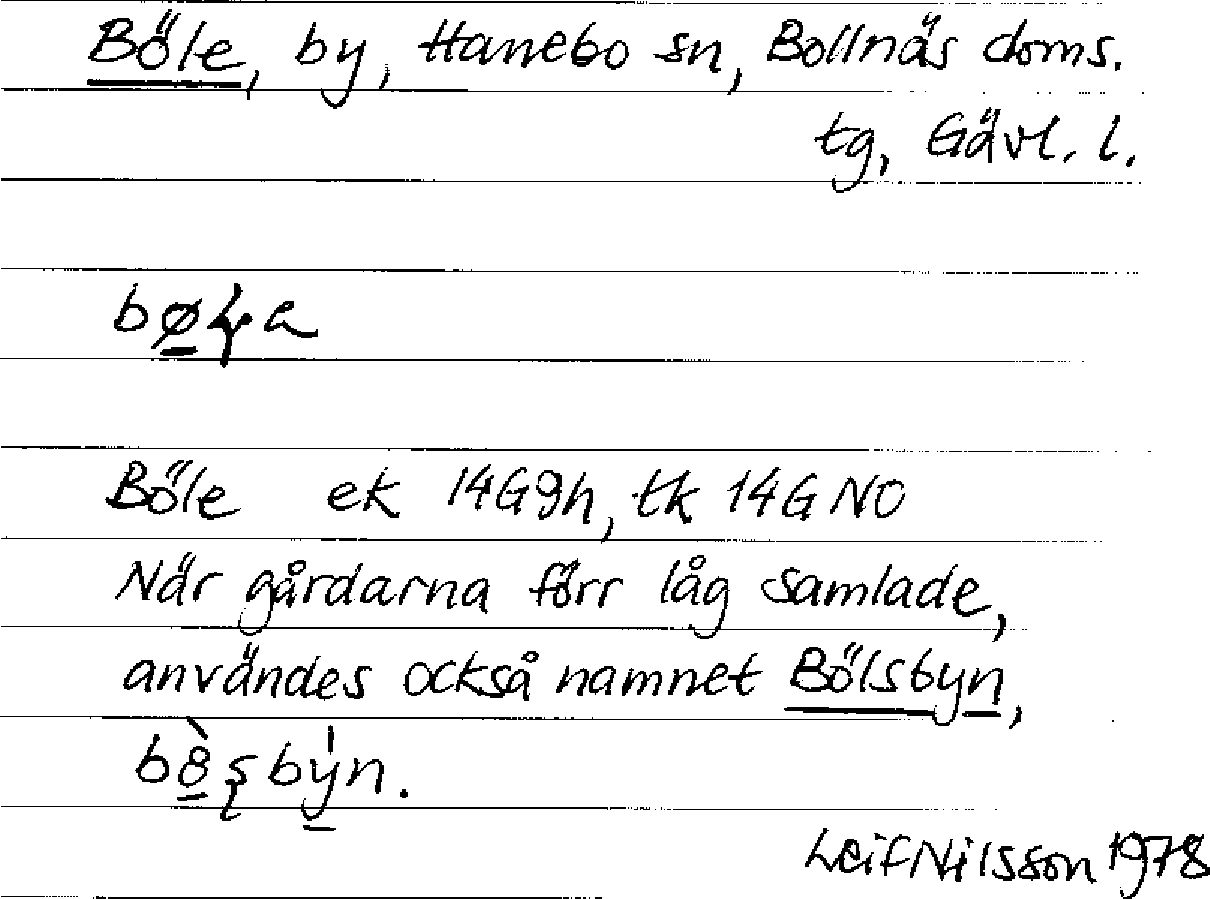 Böle, by, Hanebo sn, Bollnäs doms.
tg, Gävl. l.
Böle ek 14G9h, tk 14G NO
När gårdarna förr låg samlade,
användes också namnet Bölsbyn,
Leif Nilsson 1978